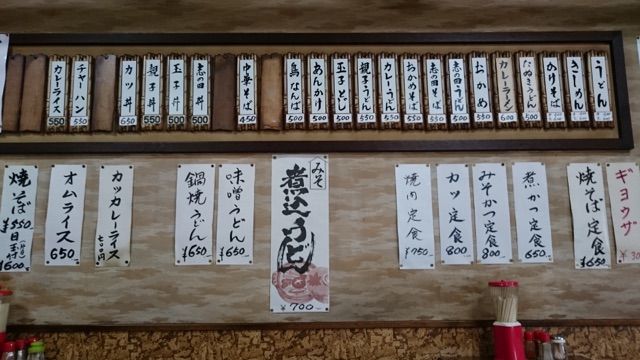 うどん
きしめん
かけそば
たぬきうどん
カレーラーメン 600
おかめ 550
志の田うどん 500
志の田そば 500
おかめそば 550
カレーうどん 550
親子うどん 550
玉子とじ 500
あんかけ 500
鳥なんば 500
中華そば 450
志の田丼 500
玉子丼 500
親子丼 550
カツ丼 650
チャーハン 550
カレーライス 550
ギョウザ
焼そば定食 ¥650
煮かつ定食 650
みそかつ定食 800
カツ定食 800
焼肉定食 ¥750
みそ
煮込うどん
¥700
味噌うどん ¥650
鍋焼うどん ¥650
カツカレーライス
オムライス 650
焼そば ¥550
目玉付 ¥600